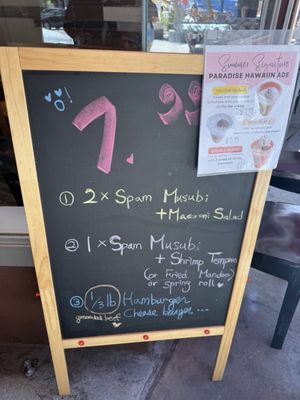 Summer Signature
PARADISE HAWAIIN ADE
7.99
① 2 x Spam Musubi
+ Macaroni Salad
② 1 x Spam Musubi
+ Shrimp Tempura
(or Fried Mandoo)
or Spring roll
③ 1/3 lb Hamburger
grounded beef Cheese burger ...